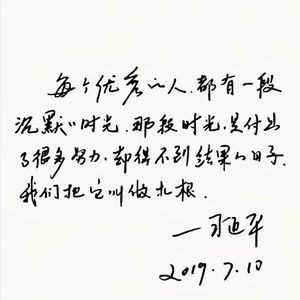 每个优秀的人,都有一段
沉默的时光.那段时光,是付出
了很多努力,却得不到结果的日子.
我们把它叫做扎根.
2019.7.10